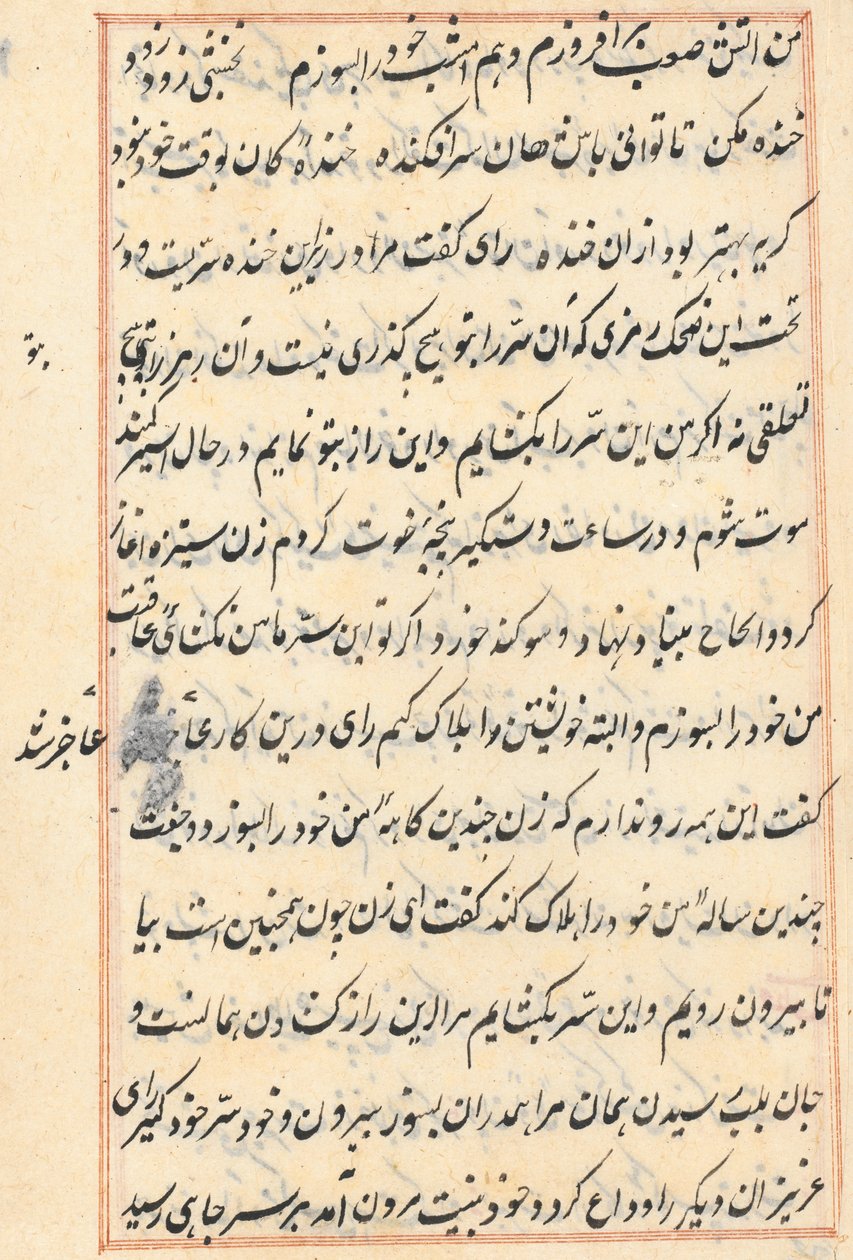 من اتش صعب برافروزم وهم امشب خود را بسوزم نخشبی زود زود
خنده مکن تا توانی باش هان سرافکنده خندهٔ کان بوقت خود نبود
کریه بهتر بود ازان خنده رای کفت مرا در زیر این خنده سرّیست و در
تحت این ضحک رمزی که آن سرّ را بتو هیچ کذری نیست و آن رمز را بتو هیچ
بتو
تعلقی نه اکر من این سرّ را بکشایم و این راز بتو نمایم در حال اسیر کمند
موت شوم و در ساعت دستکیر پنجهٔ فوت کردم زن ستیزه اغاز
کرد و الحاح بنیاد نهاد و سوکند خورد اکر تو این سرّ با من نکشائی عاقبت
من خود را بسوزم والبته خویشتن را هلاک کنم رای درین کار عاجز
عاجز شد
کفت این همه روندارم که زن چندین کاههٔ من خود را بسوزد و جفت
چندین سالهٔ من خود را هلاک کند کفت ای زن چون همچنین است بیا
تا بیرون رویم و این سّر بکشایم مرا این راز کشادن همانست و
جان بلب رسیدن همان مرا همدران بسوز بیرون و خود سّر خود کیر رای
عزیزان دیکر را وداع کرد و خود بنیت مردن آمد بر سر چاهی رسید